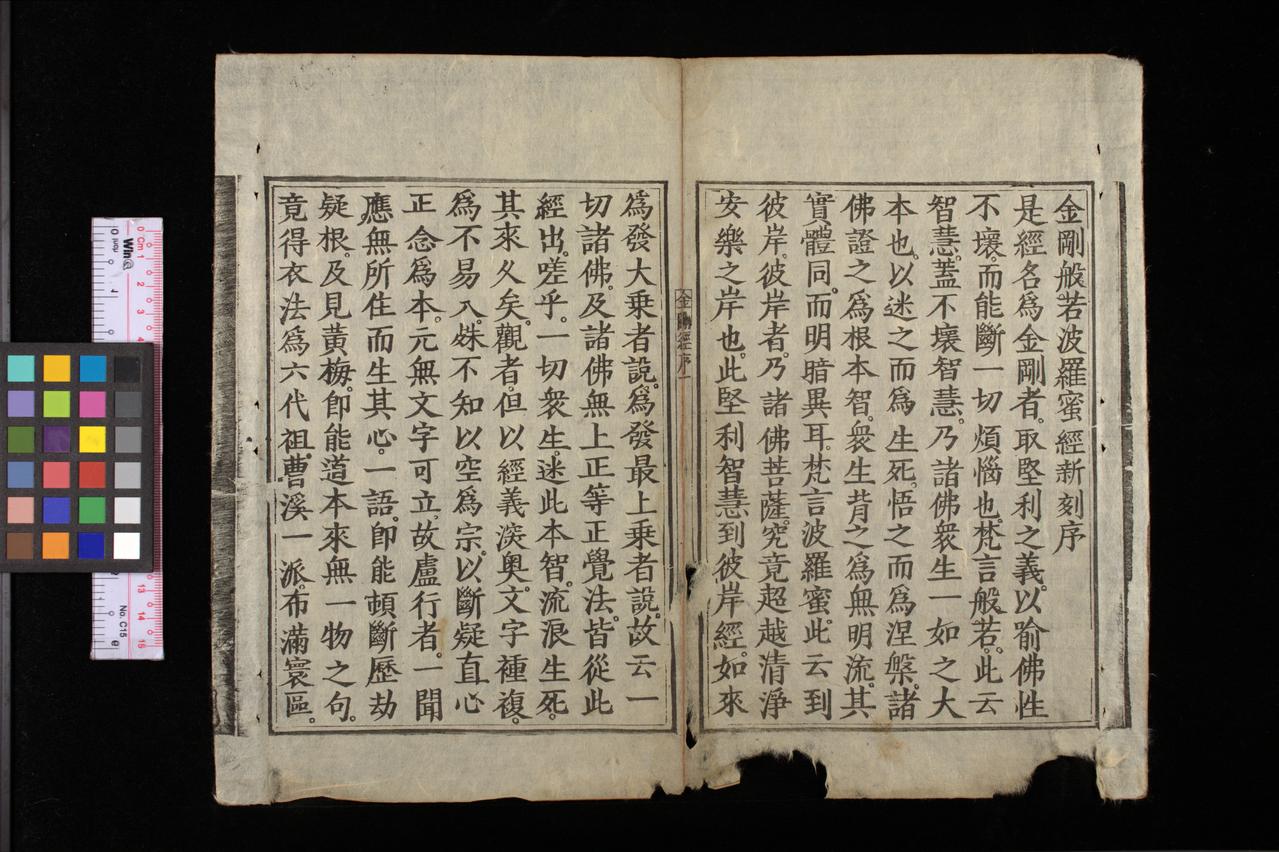 金剛般若波羅蜜經新刻序
是經名爲金剛者。取堅利之義。以喻佛性
不壞。而能斷一切煩惱也。梵言般若。此云
智慧。蓋不壞智慧。乃諸佛衆生一如之大
本也。以迷之而爲生死。悟之而爲涅槃。諸
佛證之爲根本智。衆生背之爲無明流。其
實體同。而明暗異耳。梵言波羅蜜。此云到
彼岸。彼岸者。乃諸佛菩薩。究竟超越清淨
安樂之岸也。此堅利智慧到彼岸經。如來
金剛經序一
爲發大乘者說。爲發最上乘者說。故云一
切諸佛。及諸佛無上正等正覺法。皆從此
經出。嗟乎。一切衆生。迷此本智。流浪生死。
其來久矣。觀者。但以經義深奧。文字種複。
爲不易入。姝不知以空爲宗。以斷疑直心
正念爲本。元無文字可立。故盧行者。一聞
應無所住而生其心。一語。卽能頓斷歷劫
疑根。及見黃梅。卽能道本來無一物之句。
竟得衣法爲六代祖。曹溪一派。布滿寰區。
Win@
Cm 1 2 3 13 14 15
No. C15